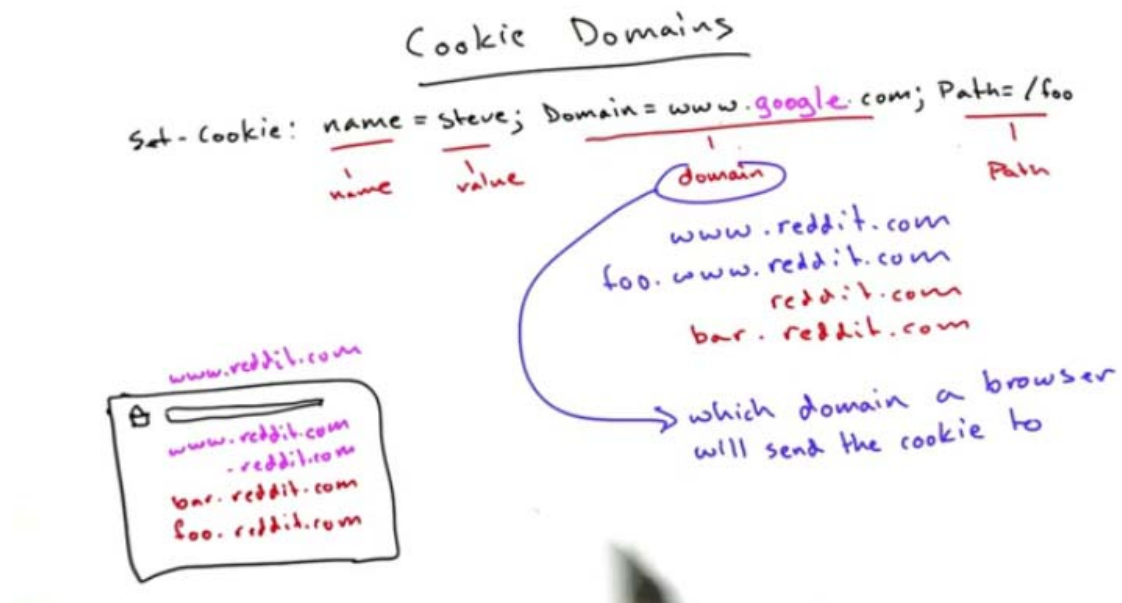 Cookie Domains
Set-Cookie: name = steve; Domain = www.google.com; Path= /foo
name value domain Path
www.reddit.com
foo.www.reddit.com
reddit.com
bar.reddit.com
which domain a browser
will send the cookie to
www.reddit.com
www.reddit.com
.reddit.com
bar.reddit.com
foo.reddit.com